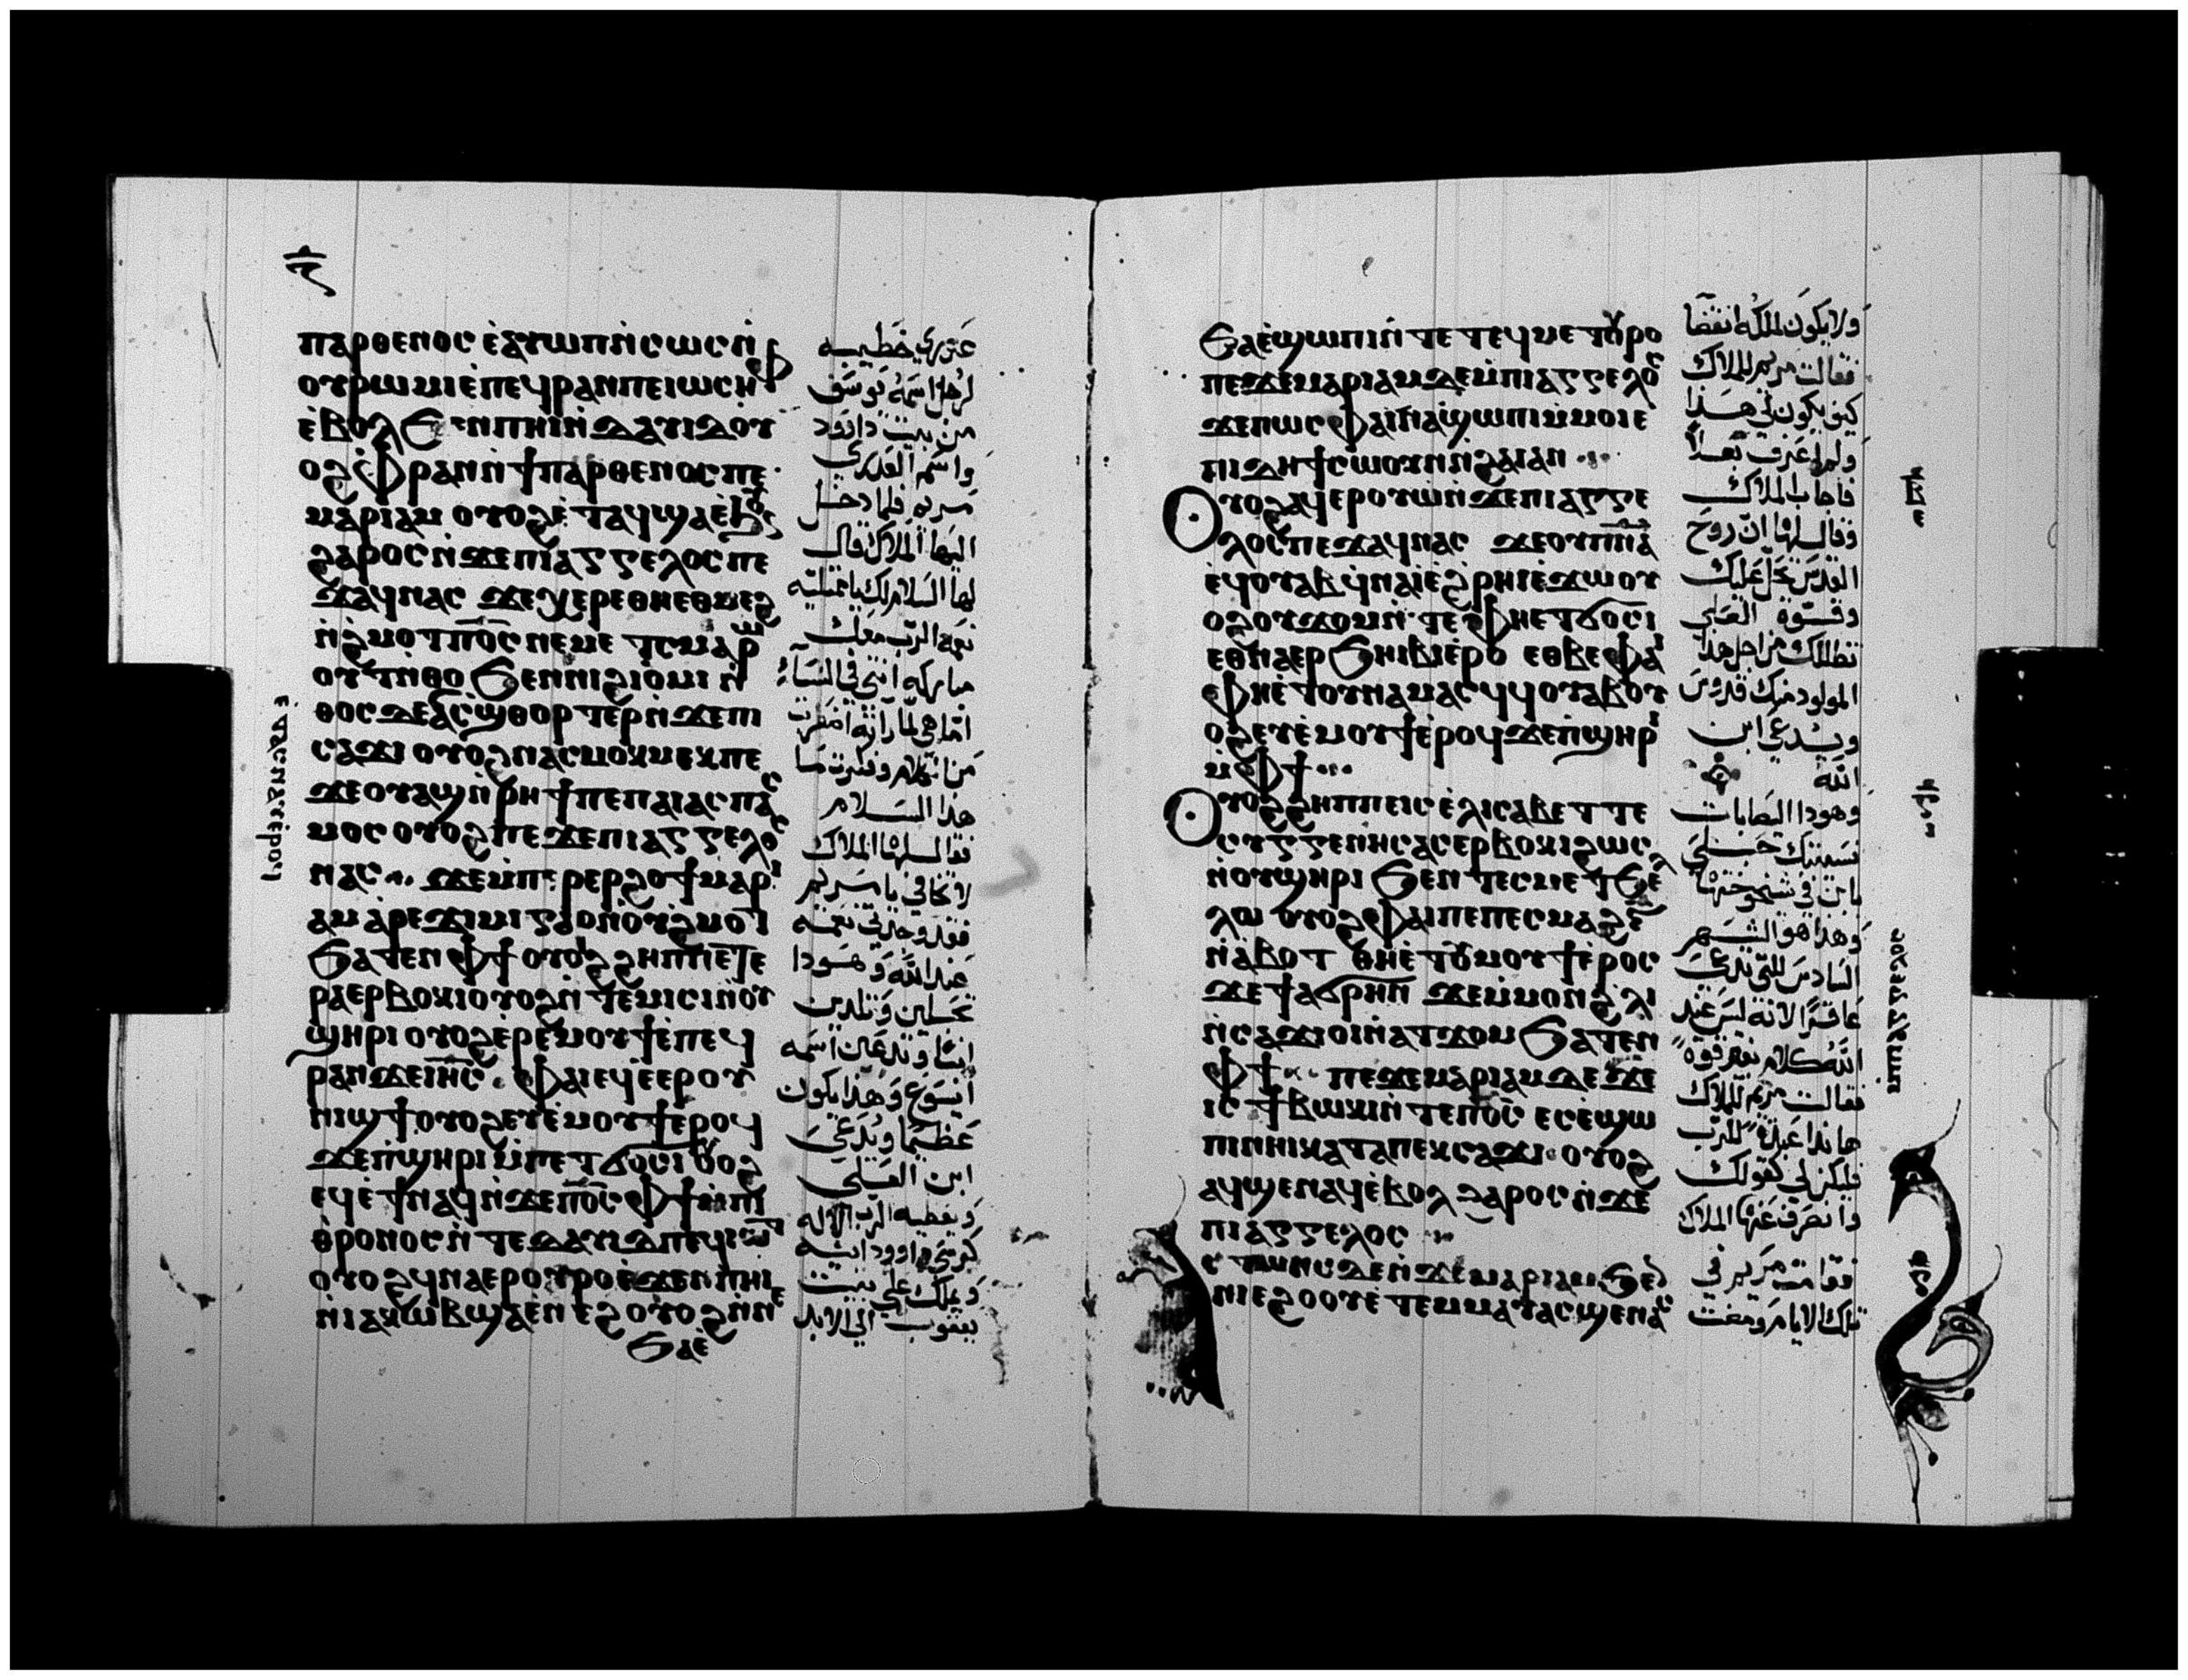 ⲡⲁⲣⲑⲉⲛⲟⲥ ⲉ̀ⲁⲩⲱⲡ ⲛ̀ⲥⲱⲥ ⲛ̀
ⲟⲩⲣⲱⲙⲓ ⲉ̀ⲡⲉϥⲣⲁⲛ ⲡⲉ ⲓⲱⲥⲏⲫ
ⲉ̀ⲃⲟⲗ ϧⲉⲛ ⲡⲏⲓ ⲛ̀ⲇⲁⲩⲓⲇ ⲟⲩ
ⲟϩ ⲫⲣⲁⲛ ⲛ̀ϯⲡⲁⲣⲑⲉⲛⲟⲥ ⲡⲉ
ⲙⲁⲣⲓⲁⲙ ⲟⲩⲟϩ ⲉ̀ⲧⲁϥϣⲉ ⲉ̀ϧⲟⲩⲛ
ϩⲁⲣⲟⲥ ⲛ̀ϫⲉⲡⲓⲁⲅⲅⲉⲗⲟⲥ ⲡⲉ
ϫⲁϥⲛⲁⲥ ϫⲉⲭⲉⲣⲉ ⲑⲏⲉⲑⲙⲉϩ
ⲛ̀ϩⲙⲟⲧ ⲡⲟ̅ⲥ̅ ⲛⲉⲙⲉ ⲧⲥⲙⲁⲣⲱ
ⲟⲩⲧ ⲛ̀ⲑⲟ ϧⲉⲛ ⲛⲓϩⲓⲟ̀ⲙⲓ ⲛ̀
ⲑⲟⲥ ⲇⲉ ⲁⲥϣⲑⲟⲣⲧⲉⲣ ⲛ̀ϫⲉⲡⲓ
ⲥⲁϫⲓ ⲟⲩⲟϩ ⲛⲁⲥⲙⲟⲕⲙⲉⲕ ⲡⲉ
ϫⲉⲟⲩⲁϣ ⲛ̀ⲣⲏϯ ⲡⲉ ⲡⲁⲓⲁⲥⲡⲁⲥ
ⲙⲟⲥ ⲟⲩⲟϩ ⲡⲉϫⲉ ⲡⲓⲁⲅⲅⲉⲗⲟⲥ
ⲛⲁⲥ ϫⲉⲙ̀ⲡⲉⲣⲉⲣϩⲟϯ ⲙⲁⲣⲓ
ⲁⲙ ⲁ̀ⲣⲉϫⲓⲙⲓ ⲅⲁⲣ ⲛ̀ⲟⲩϩⲙⲟⲧ
ϧⲁⲧⲉⲛ ⲫϯ ⲟⲩⲟϩ ϩⲏⲡⲡⲉ ⲧⲉ
ⲣⲁⲉⲣⲃⲟⲕⲓ ⲟⲩⲟϩ ⲛ̀ⲧⲉⲙⲓⲥⲓ ⲛ̀ⲟⲩ
ϣⲏⲣⲓ ⲟⲩⲟϩ ⲉⲣⲉ̀ⲙⲟⲩϯ ⲉ̀ⲡⲉϥ
ⲣⲁⲛ ϫⲉⲓ̅ⲏ̅ⲥ̅ ⲫⲁⲓ ⲉϥⲉ̀ⲉⲣⲟⲩ
ⲛⲓϣϯ ⲟⲩⲟϩ ⲉⲩⲉ̀ⲙⲟⲩϯ ⲉ̀ⲣⲟϥ
ϫⲉⲡ̀ϣⲏⲣⲓ ⲙ̀ⲡⲉⲧϭⲟⲥⲓ ⲟⲩⲟϩ
ⲉϥⲉ̀ϯⲛⲁϥ ⲛ̀ϫⲉⲡⲟ̅ⲥ̅ ⲫϯ ⲙ̀ⲡⲓ
ⲑⲣⲟⲛⲟⲥ ⲛ̀ⲧⲉ ⲇⲁⲩⲓⲇ ⲡⲉϥⲓⲱⲧ
ⲟⲩⲟϩ ϥⲛⲁⲉⲣⲟⲩⲣⲟ ⲉ̀ϫⲉⲛ ⲡⲏⲓ
ⲛ̀ⲓⲁⲕⲱⲃ ϣⲁ ⲉ̀ⲛⲉϩ ⲟⲩⲟϩ ⲛ̀ⲛⲉ
ϧⲁⲉ̀
ⲉ̀ⲧⲁⲥⲛⲁⲩ ⲉ̀ⲣⲟϥ
عذرى خطيبه
لرجل اسمه يوسف
من بيت داوود
واسم العذرى
مريم فلما دخل
اليها الملاك قال
لها السلام لك يا ممتليه
نعمه الرب معك
مباركه انتي في النسآء
اما هي لما راته اضطربت
من الكلام وفكرت ما
هذا السلام
فقال لها الملاك
لا تخافي يا مريم
فقد وجدتي نعمه
عند الله وهودا
تحبلين وتلدين
ابنا وتدعين اسمه
ايسوع وهذا يكون
عظيما ويدعى
ابن العلى
ويعطيه الرب الاله
كرسي داوود ابيه
ويملك على بيت
يعقوب الى الابد
ϧⲁⲉ̀ ϣⲱⲡⲓ ⲛ̀ⲧⲉ ⲧⲉϥⲙⲉⲧⲟⲩⲣⲟ
ⲡⲉϫⲉ ⲙⲁⲣⲓⲁⲙ ϫⲉⲙ̀ⲡⲓⲁⲅⲅⲉⲗⲟⲥ
ϫⲉⲡⲱⲥ ⲫⲁⲓ ⲛⲁϣⲱⲡⲓ ⲙ̀ⲙⲟⲓ ⲉ
ⲡⲓⲇⲏ ϯⲥⲱⲟⲩⲛ ⲛ̀ϩⲁⲓ ⲁⲛ
ⲟⲩⲟϩ ⲁϥⲉⲣⲟⲩⲱ̀ ⲛ̀ϫⲉⲡⲓⲁⲅⲅⲉ
ⲗⲟⲥ ⲡⲉϫⲁϥⲛⲁⲥ ϫⲉⲟⲩⲡ̅ⲛ̅ⲁ̅
ⲉϥⲟⲩⲁⲃ ϥ̀ⲛⲁⲓ̀ ⲉ̀ϩⲣⲏⲓ ⲉ̀ϫⲱ ⲟⲩ
ⲟϩ ⲟⲩϫⲟⲙ ⲛ̀ⲧⲉ ⲫⲏⲉⲧϭⲟⲥⲓ
ⲉⲑⲛⲁⲉⲣϧⲏⲓⲃⲓ ⲉ̀ⲣⲟ ⲉⲑⲃⲉⲫⲁⲓ
ⲫⲏⲉ̀ⲧⲟⲩⲛⲁⲙⲁⲥϥ ϥⲟⲩⲁⲃ ⲟⲩ
ⲟϩ ⲉⲩⲉ̀ⲙⲟⲩϯ ⲉ̀ⲣⲟϥ ϫⲉⲡ̀ϣⲏⲣⲓ
ⲙ̀ⲫϯ
ⲟⲩⲟϩ ϩⲏⲡⲡⲉ ⲓⲥ ⲉ̀ⲗⲓⲥⲁⲃⲉⲧ ⲧⲉ
ⲥⲩⲅⲅⲉⲛⲏⲥ ⲁⲥⲉⲣⲃⲟⲕⲓ ϩⲱⲥ
ⲛ̀ⲟⲩϣⲏⲣⲓ ϧⲉⲛ ⲧⲉⲥⲙⲉⲧϧⲉⲗ
ⲗⲱ ⲟⲩⲟϩ ⲫⲁⲓ ⲡⲉ ⲡⲉⲥⲙⲁϩⲋ̅
ⲛ̀ⲁ̀ⲃⲟⲧ ⲑⲏⲉ̀ⲧⲟⲩⲙⲟⲩϯ ⲉ̀ⲣⲟⲥ
ϫⲉϯⲁϭⲣⲏⲛ ϫⲉⲙ̀ⲙⲟⲛ ϩⲗⲓ
ⲛ̀ⲥⲁϫⲓ ⲟⲓ ⲛ̀ⲁⲧϫⲟⲙ ϧⲁⲧⲉⲛ
ⲫϯ ⲡⲉϫⲉ ⲙⲁⲣⲓⲁⲙ ⲇⲉ ϫⲉ
ⲓⲥ ϯⲃⲱⲕⲓ ⲛ̀ⲧⲉ ⲡⲟ̅ⲥ̅ ⲉⲥⲉ̀ϣⲱ
ⲡⲓ ⲛⲏⲓ ⲕⲁⲧⲁ ⲡⲉⲕⲥⲁϫⲓ ⲟⲩⲟϩ
ⲁϥϣⲉⲛⲁϥ ⲉ̀ⲃⲟⲗ ϩⲁⲣⲟⲥ ⲛ̀ϫⲉ
ⲡⲓⲁⲅⲅⲉⲗⲟⲥ
ⲥⲧⲱⲛⲥ ⲇⲉ ⲛ̀ϫⲉ ⲙⲁⲣⲓⲁⲙ ϧⲉⲛ
ⲛⲓⲉϩⲟⲟⲩ ⲉ̀ⲧⲉⲙⲙⲁⲩ ⲁⲥϣⲉⲛⲁⲥ
ولا يكون لملكه انقضا
فقالت مريم للملاك
كيف يكون لي هذا
ولم اعرف بعلا
فاجاب الملاك
وقال لها ان روح
القدس تحل عليك
وقوة العلي
تظللك من اجل هذا
المولود منك قدوس
ويدعي ابن
الله
وهودا اليصابات
نسيبتك حبلى
بابن في شيخوختها
وهذا هو الشهر
السادس للتي تدعى
عاقرا لانه ليس عند
الله كلام بغير قوة
فقالت مريم للملاك
هاندا عبدة للرب
فليكن لي كقولك
وانصرف عنها الملاك
فقامت مريم في
تلك الايام ومضت